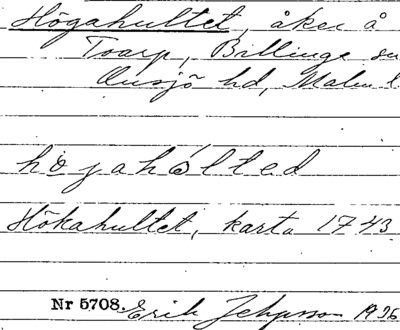 Högahultet, åker å
Toarp, Billinge sn
Onsjö hd, Malm l
högahólted
Hökahultet, karta 1743
Nr 5708. Erik 1936